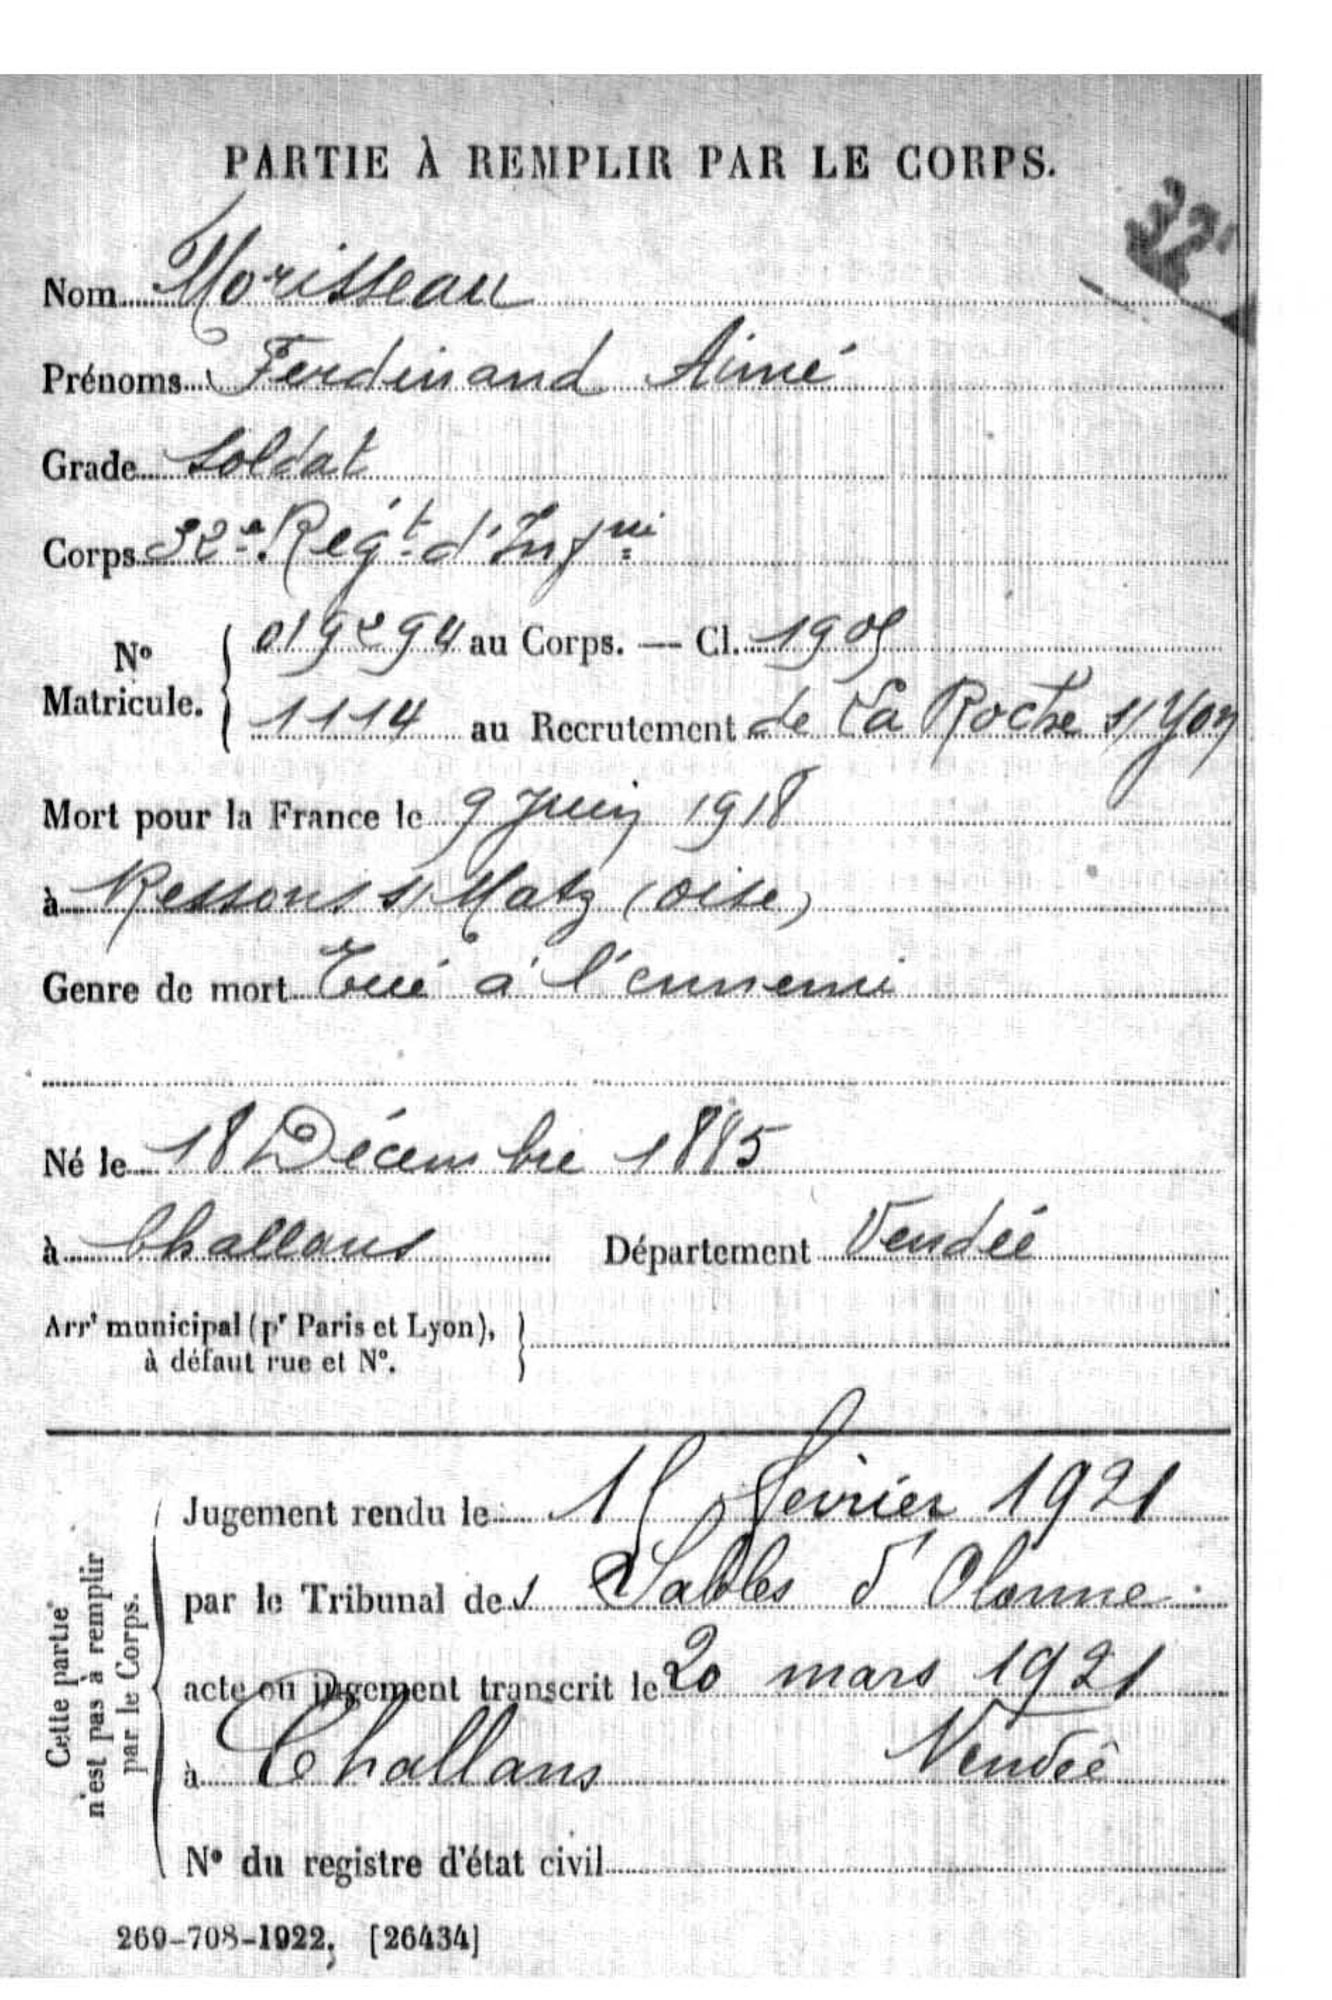 PARTIE À REMPLIR PAR LE CORPS.
32
Nom Morisseau
Prénoms Ferdinand Aimé
Grade Soldat
Corps 32e Régt d'Infrie
No Matricule. { 019294 au Corps. — Cl. 1905
1114 au Recrutement de La Roche s/ Yon
Mort pour la France le 9 Juin 1918
à Ressons s/ Matz (Oise)
Genre de mort Tué à l'ennemi
Né le 18 Décembre 1885
à Challans Département Vendée
Arrt municipal (pr Paris et Lyon), }
à défaut rue et No.
Cette partie
n'est pas à remplir
par le Corps.
Jugement rendu le 15 février 1921
par le Tribunal des Sables d'Olonne
acte ou jugement transcrit le 20 mars 1921
à Challans Vendée
No du registre d'état civil
269-708-1922. [26434]